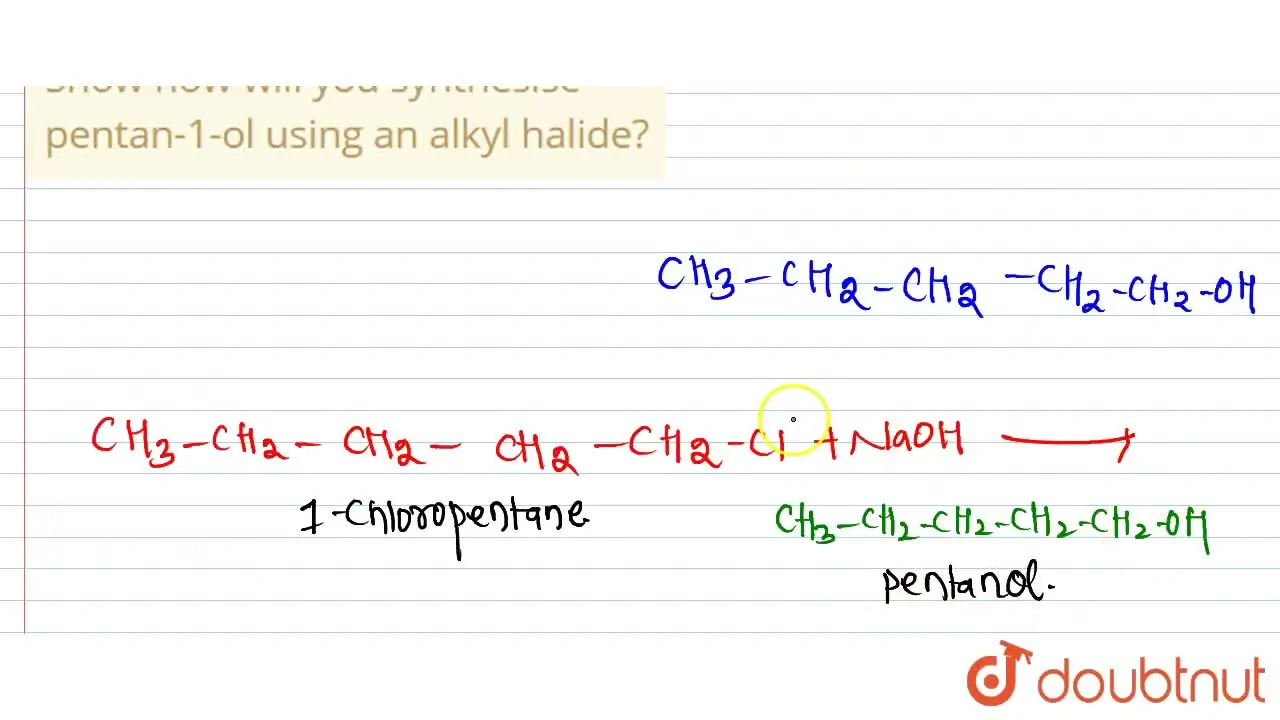 show how will you synthesise
pentan-1-ol using an alkyl halide?
CH3-CH2-CH2-CH2-CH2-OH
CH3-CH2-CH2-CH2-CH2-Cl + NaOH ⟶
1-Chloropentane
CH3-CH2-CH2-CH2-CH2-OH
pentanol.
doubtnut